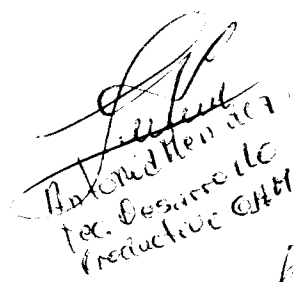 Antonio Mendez
Tec. Desarrollo
Productivo